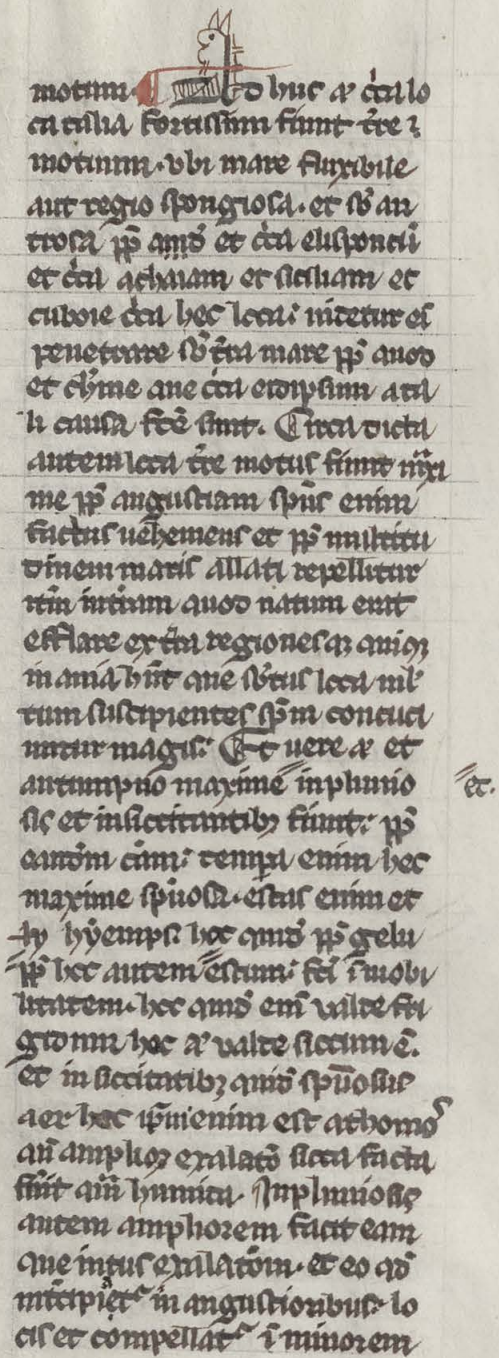 motuum ¶ Ad huc aut circa lo
ca talia fortissimi fiunt tre
motuum. Vbi mare fluxibile
aut regio spongiosa. et sb an
trosa pp quid et circa elispontū
et circa achaiam et siciliam et
euboie circa hec loca: uidetur eī
penetrare sb trā mare pp quod
et thme que circa edipsum a ta
li causa fcē sunt. Circa dicta
autem loca tre motus fiunt maxi
me pp angustiam spūs enim
factus uehemens et pp multitu
dinem maris allati repellitur
itm in terram quod natum erat
efflare ex tra regionesq quicq
inania hnt que sbtus loca mul
tum suscipientes spm concuci
untur magis: Et uere aut et
autumpno maxime in pluuio
et.
sis et in siccitatibz fiunt: pp
eandem cām: tempora enim hec
maxime spuosa. estas enim et
hyemps: hec quid pp gelu
pp hec autem estum: fcī īmobi
litatem. hec quid enī ualde fri
gidum hec aut ualde siccum ē.
et in siccitatibz quid spuosus
aer hec ipm enim est athomos
an amplior exalato sicca facta
fuit quam humida. In pluuiosis
autem ampliorem facit eam
que intus exalatom. et eo qd
intcipiet in angustioribus lo
cis et compellat ī minorem